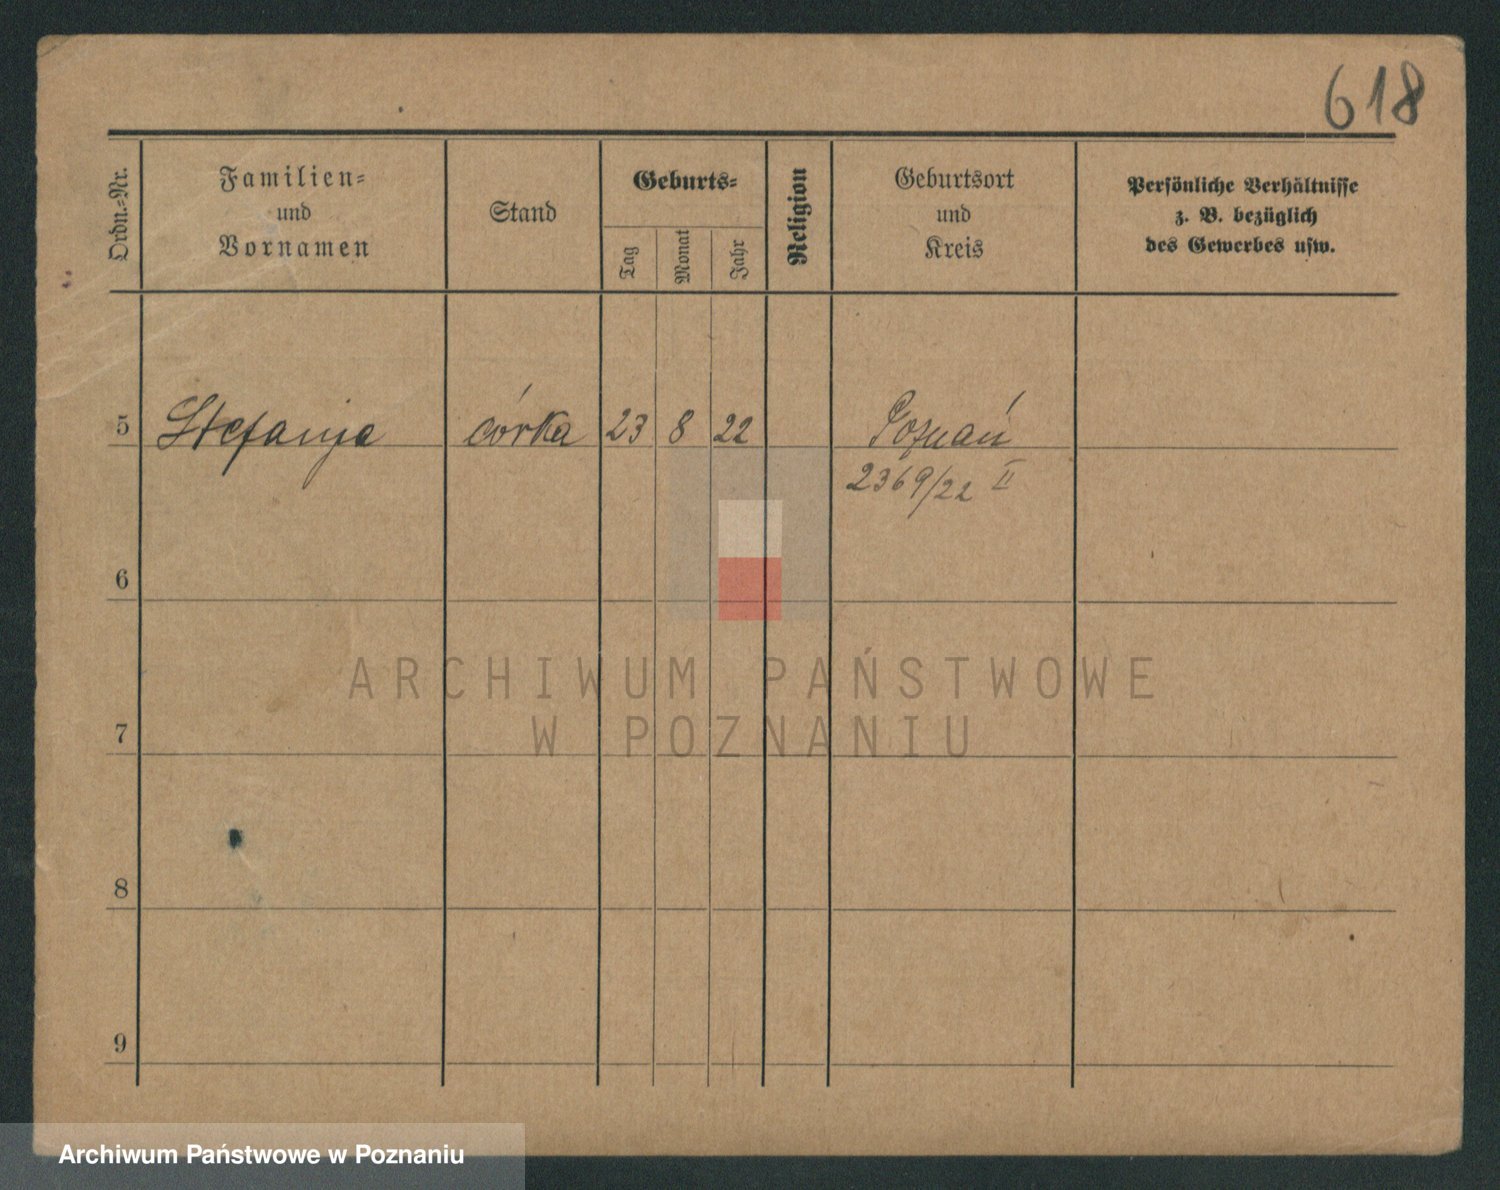 618
Ordn.-Nr.
Familien-
und
Vornamen
Stand
Geburts-
Tag
Monat
Jahr
Religion
Geburtsort
und
Kreis
Persönliche Verhältnisse
z. B. bezüglich
des Gewerbes usw.
5 Stefanja córka 23 8 22 Poznań
2369/22 II
6
ARCHIWUM PAŃSTWOWE
7
W POZNANIU
8
9
Archiwum Państwowe w Poznaniu